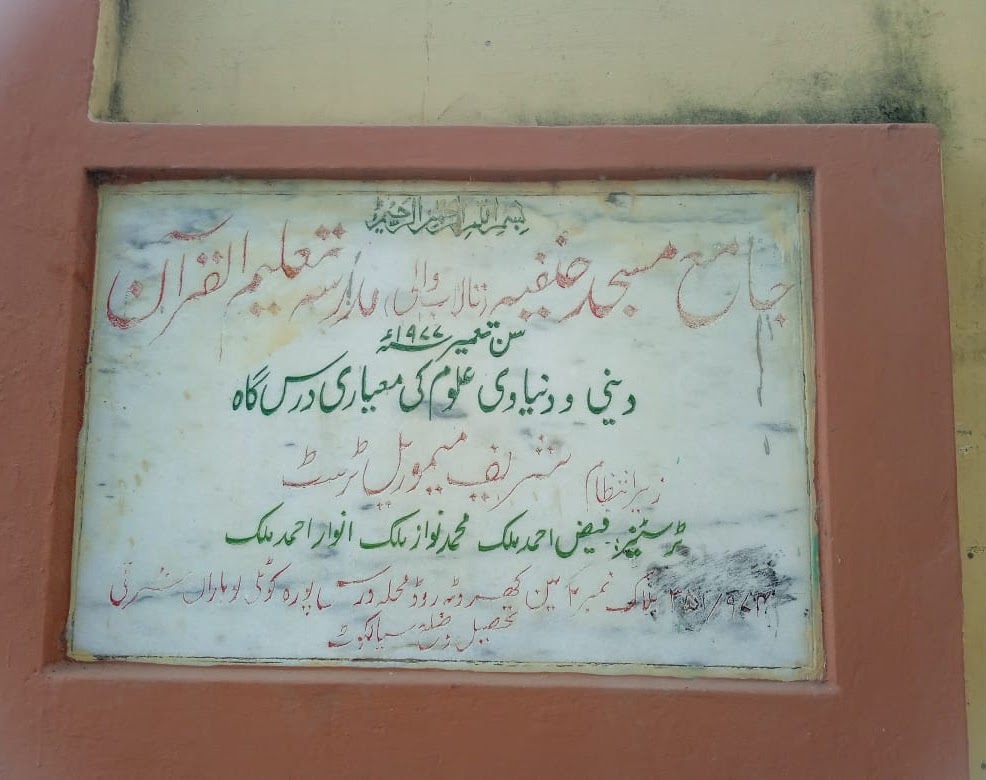 بسم اللہ الرحمن الرحیم
جامع مسجد حنفیہ (تالاب والی) مدرسہ تعلیم القرآن
سن تعمیر ۱۹۷۷ء
دینی و دنیاوی علوم کی معیاری درس گاہ
زیر انتظام شریف میموریل ٹرسٹ
ٹرسٹیز: فیض احمد ملک محمد نواز ملک انوار احمد ملک
بلاک نمبر ۲ مین کھیروٹہ روڈ محلہ پورہ کوٹلی لوہاراں شرقی
تحصیل و ضلع سیالکوٹ